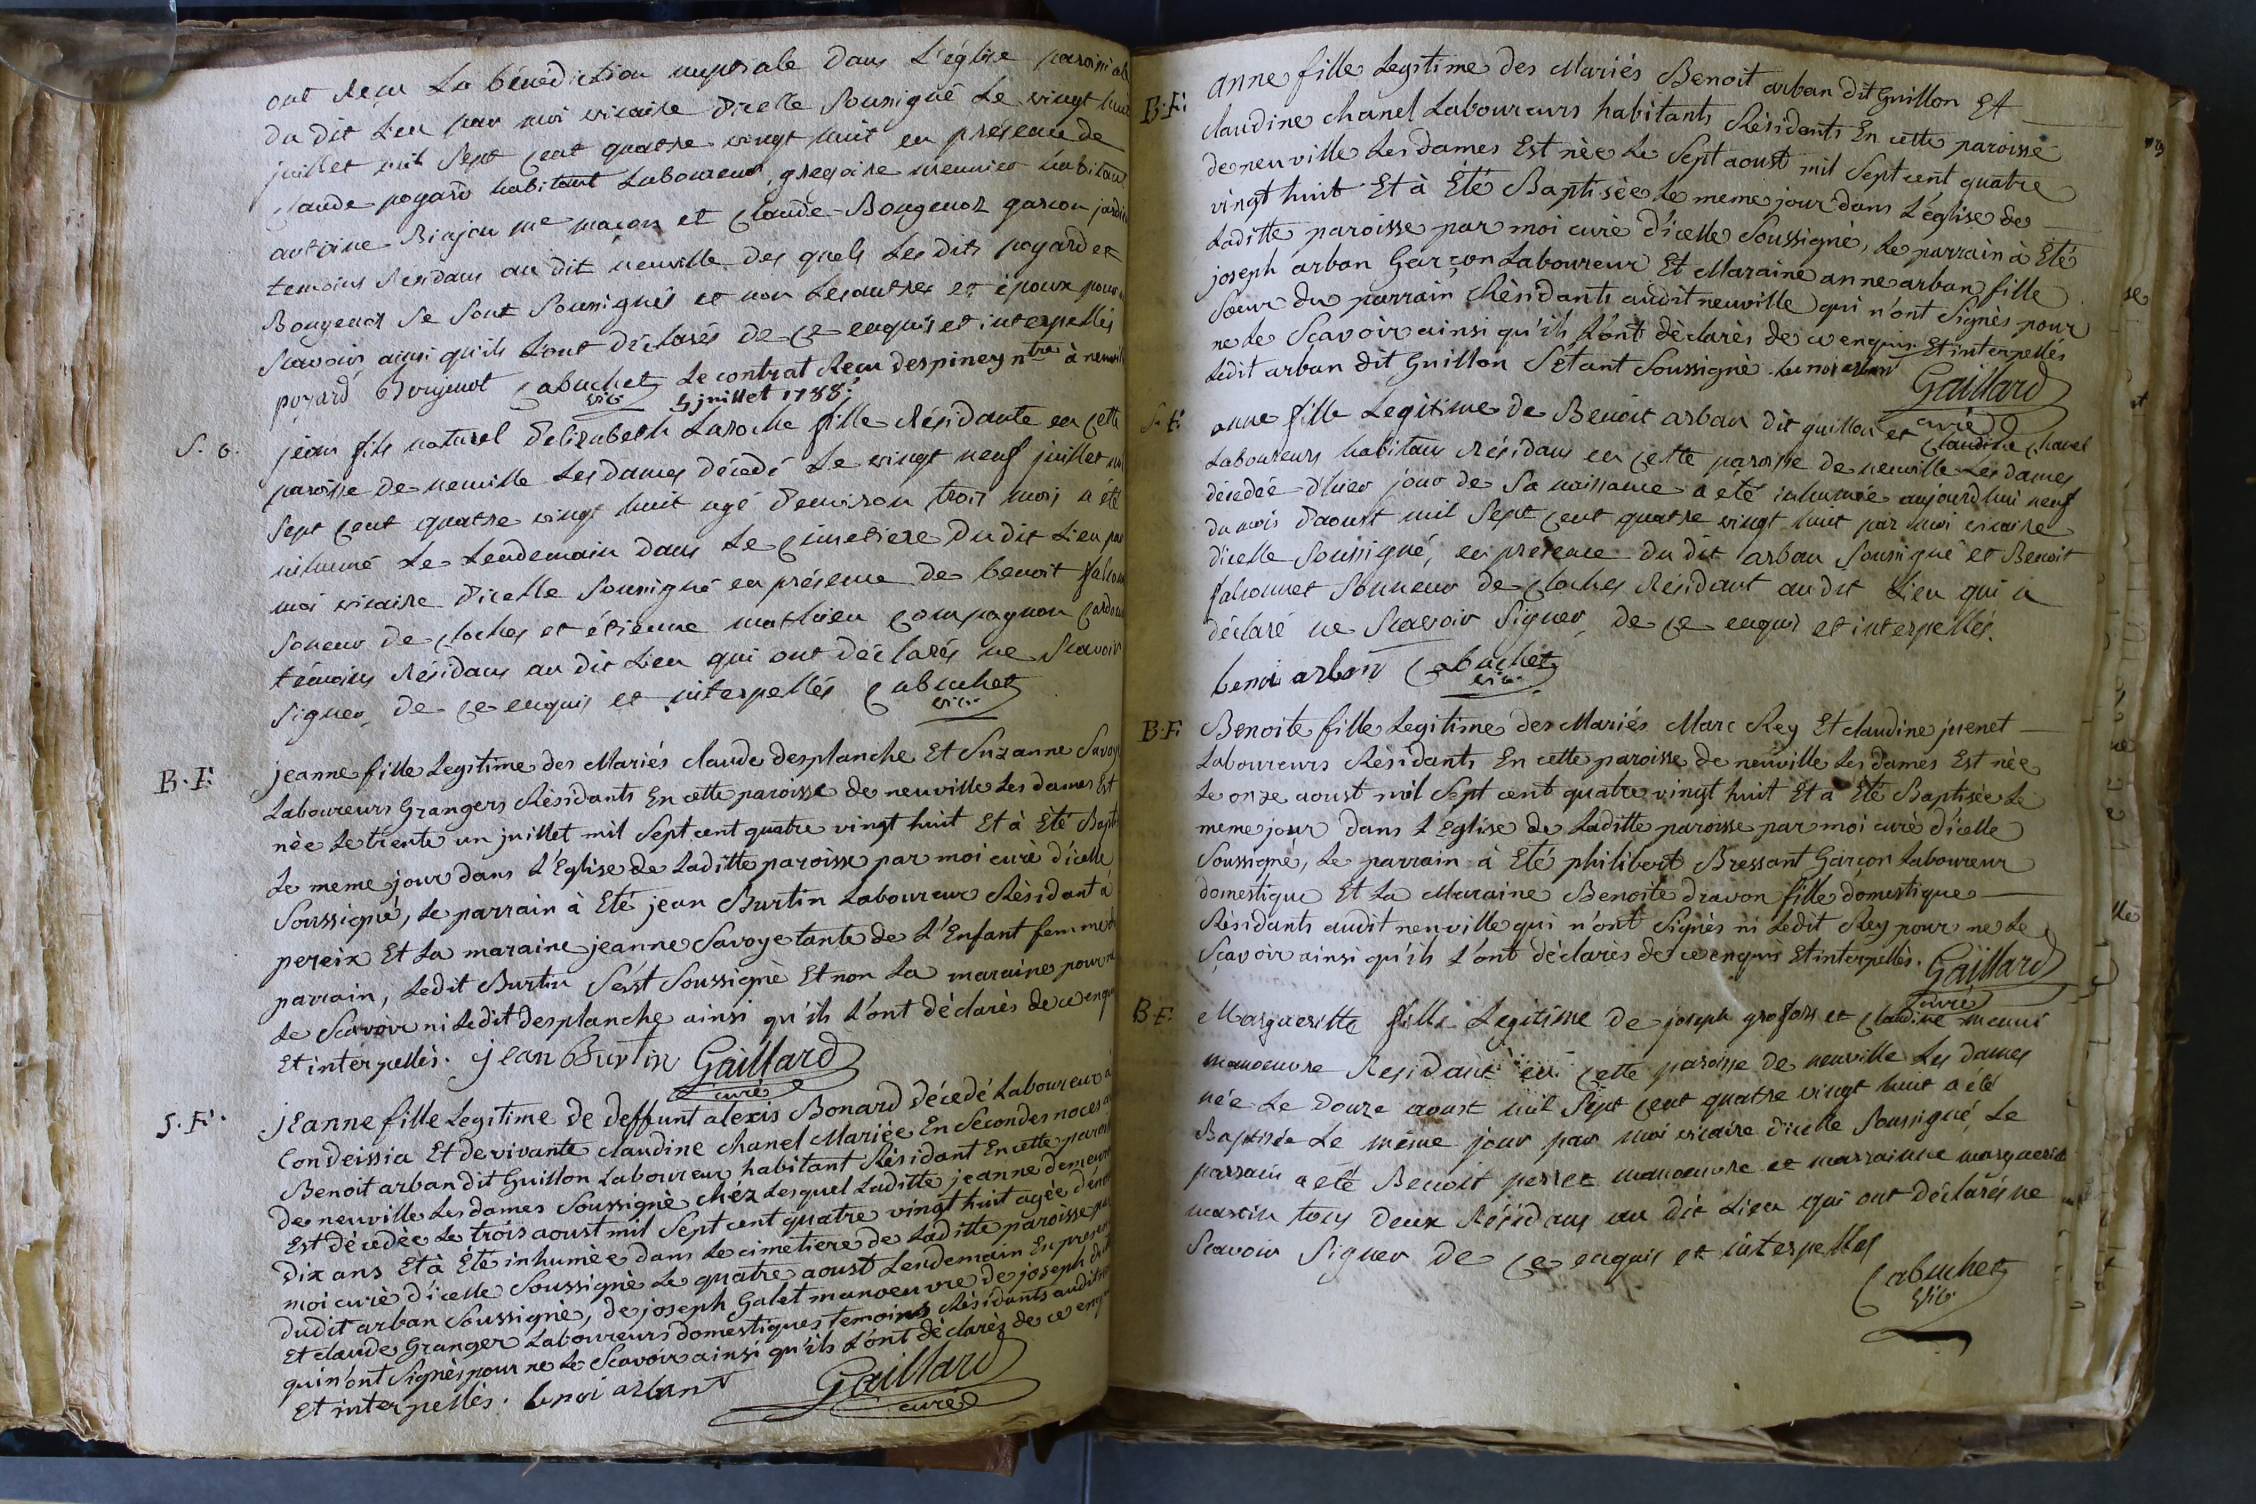 ont Reçu La bénédiction nuptiale dans L'église
du dit Lieu par moi vicaire d'icelle soussigné Le vingt huit
juillet mil Sept cent quatre vingt huit en présence de
claude poyard habitant Laboureur, gregoire meunier habitant
antoine Binjon me maçon et claude Bougenot garcon
temoins Residans au dit neuville des quels Les dits poyard et
Bougenot Se Sont Soussignés et non Les autres et époux pour
Scavoir ainsi qu'ils L'ont déclarés de ce enquis et interpellés
poyard Bougenot Cabuchet Le contrat Reçu despiney ntre à
vic. juillet 1788.
S. G. jean fils naturel d'elizabeth Laroche fille Résidante en cette
paroisse de neuville Les dames décédé Le vingt neuf juillet mil
Sept cent quatre vingt huit agé d'environ trois mois a été
inhumé Le Lendemain dans Le cimetiere du dit Lieu par
moi vicaire d'icelle Soussigné en présence de benoit
Soneur de cloches et étienne mathieu compagnon
témoins Résidans au dit Lieu qui ont déclarés ne Scavoir
Signer, de ce enquis et interpellés Cabuchet
vic.
B. F. jeanne fille Legitime des Mariés claude desplanche Et Suzanne Savoye
Laboureurs Grangers Rèsidants En cette paroisse de neuville Les dames Est
nèe Le trente un juillet mil Sept cent quatre vingt huit Et à Eté
Le meme jour dans L'Eglise de Laditte paroisse par moi curè d'icelle
Soussigné, Le parrain à Eté jean Burtin Laboureur Rèsidant à
pereix Et La maraine jeanne Savoye tante de L'Enfant femme
parrain, Ledit Burtin S'est Soussignè Et non La maraine pour
Le Scavoir ni Ledit desplanche ainsi qu'ils L'ont déclarès de ce
Et interpellés. jean Burtin Gaillard
curé
S. F. jeanne fille Legitime de deffunt alexis Bonard décedé Laboureur à
Condeissia Et de vivante claudine chanel Mariée En Secondes noces à
Benoit arban dit Guillon Laboureur habitant Rèsidant En cette
de neuville Les dames Soussignè chéz Lesquel Laditte jeanne
Est dècedèe Le trois aoust mil Sept cent quatre vingt huit agée
Dix ans Et à Eté inhumèe dans Le cimetiere de Laditte paroisse par
moi curè d'icelle Soussignè Le quatre aoust Lendemain En
dudit arban Soussignè, de joseph Galet manoeuvre de joseph
Et claude Granger Laboureurs domestiques temoins Rèsidants audit
qui n'ont Signès pour ne Le Scavoir ainsi qu'ils L'ont déclarès de ce
Et interpellès. benoi arban Gaillard
curé
B. F. anne fille Legitime des Mariés Benoit arban dit Guillon Et
claudine chanel Laboureurs habitants Rèsidants En cette paroisse
de neuville Les dames Est nèe Le Sept aoust mil Sept cent quatre
vingt huit Et à Eté Baptisèe Le meme jour dans L'église de
Laditte paroisse par moi curè d'icelle Soussignè, Le parrain à Eté
joseph arban Garçon Laboureur Et Maraine anne arban fille
Soeur du parrain Rèsidants audit neuville qui n'ont Signès pour
ne Le Scavoir ainsi qu'ils L'ont dèclarès de ce enquis Et interpellés
Ledit arban dit Guillon S'etant Soussignè. benoi arban Gaillard
curé
S. F. anne fille Legitime de Benoit arban dit guillon et claudine chanel
Laboureurs habitans Résidans en cette paroisse de neuville Les dames
décedée d'hier jour de Sa naissance a été inhumée aujourdhui neuf
du mois d'aoust mil Sept cent quatre vingt huit par moi vicaire
d'icelle Soussigné, en presence du dit arban Soussigné et Benoit
falconnet Sonneur de cloches Résidant au dit Lieu qui a
déclaré ne Scavoir Signer, de ce enquis et interpellés.
benoi arban Cabuchet
vic.
B. F. Benoite fille Legitime des Mariés Marc Rey Et claudine juenet
Laboureurs Rèsidants En cette paroisse de neuville Les dames Est nèe
Le onze aoust mil Sept cent quatre vingt huit Et à Eté Baptisèe Le
meme jour dans L'Eglise de Laditte paroisse par moi curè d'icelle
Soussigné, Le parrain à Eté philibert Bressant Garcon Laboureur
domestique Et La Maraine Benoite dravon fille domestique
Rèsidants audit neuville qui n'ont Signès ni Ledit Rey pour ne Le
Sçavoir ainsi qu'ils L'ont dèclarès de ce enquis Et interpellès. Gaillard
curé
B. F. Margueritte fille Legitime de joseph grosfors et claudine
manoeuvre Residant en cette paroisse de neuville Les dames
née Le douze aoust mil Sept cent quatre vingt huit a été
Baptisée Le même jour par moi vicaire d'icelle Soussigné, Le
parrain a été Benoit perret manoeuvre et marrainne marguerite
martin tous deux Résidans au dit Lieu qui ont déclarés ne
Scavoir Signer de ce enquis et interpellés
Cabuchet
vic.